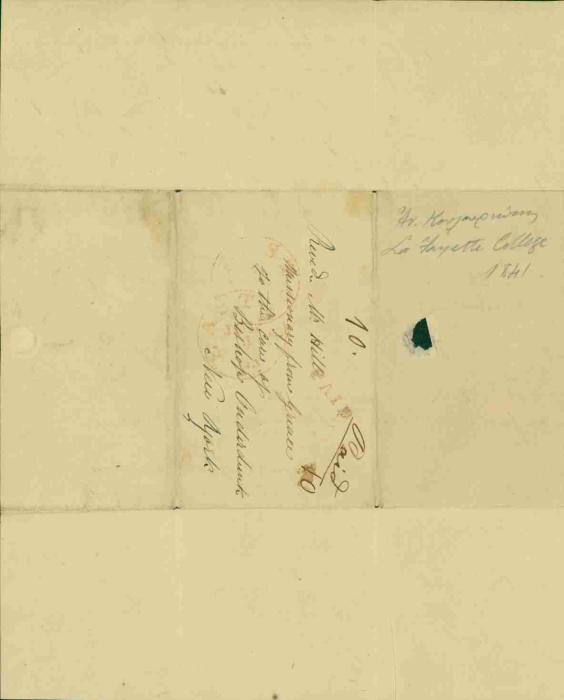 10.
Paid
10
Revd. Mr Hill
Missionary from Greece
to the care of
Bishop Onderdonk
New York
La Fayette College
1841.